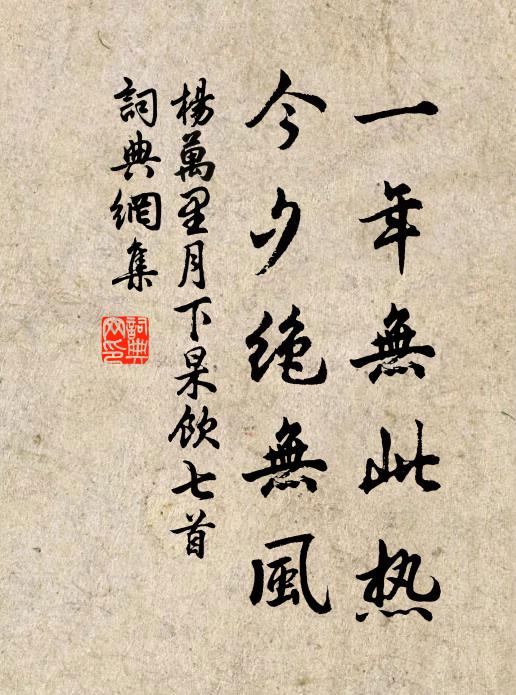 一年無此热
今夕绝無風
楊萬里月下杲飲七首
詞典網集
詞典网印